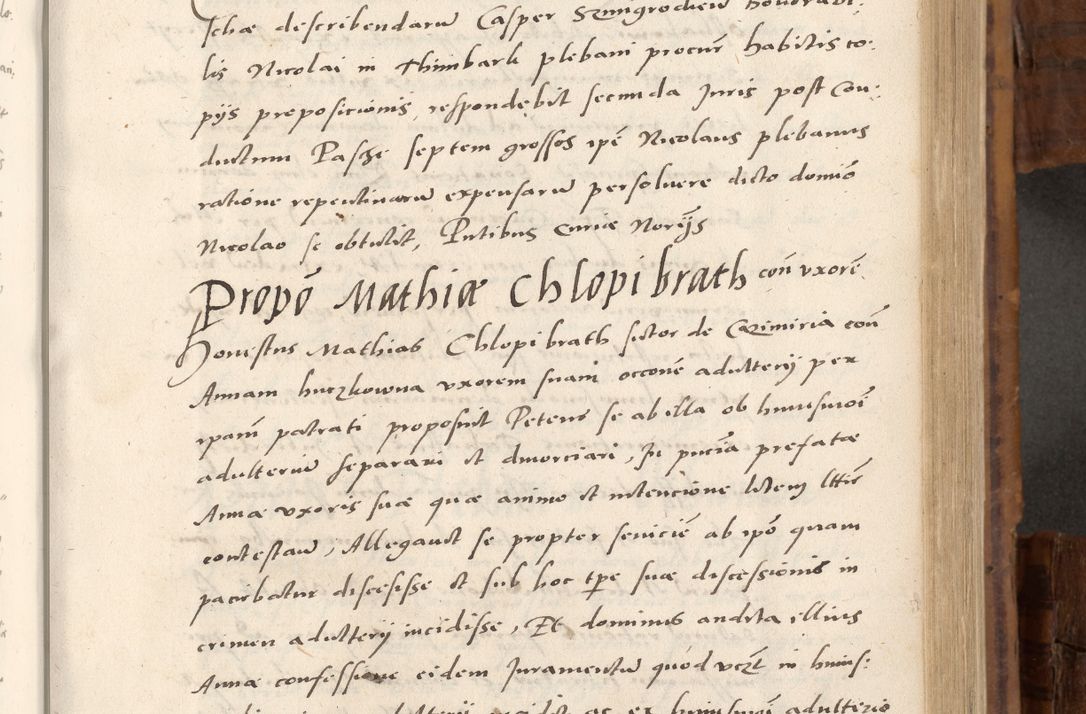 Ichæ describendarũ Casper Szmigrodciũ honorabi:
lis Nicolai in Thimbark plebani procur̃ habitis co:
pijs preposicionis, respondebit secunda Iuris post Con:
ductum Paschæ septem grossos ip̃e Nicolaus plebanus
ratione repentinarũ expensarũ persoluere dicto domiõ
Nicolao se obtulit, P̃ntibus Curiæ Norijs
Propõ Mathiæ Chlopibrath con̄ vxorẽ
Honestus Mathias Chlopibrath sutor de Cazimiria con̄
Annam huczkowna vxorem suam occõnẽ adulterij per
ipam̃ patrati proposuit Petens se ab illa ob huiusmõi
adulteriũ separari et diuorciari, In pñcia prefatæ
Annæ vxoris suæ quæ animo et intencione litem lttis
contestañ, Allegauit se propter seuiciẽ ab ipõ quam
paciebatur discesisse et sub hoc tp̃e suæ discessionis in
crimen adulterij incidisse, Et dominus audita illius
Annæ confessione eidem Iuramentũ quod vczt in huius:
adulterij incidit ac ex huiusmõi adulterio